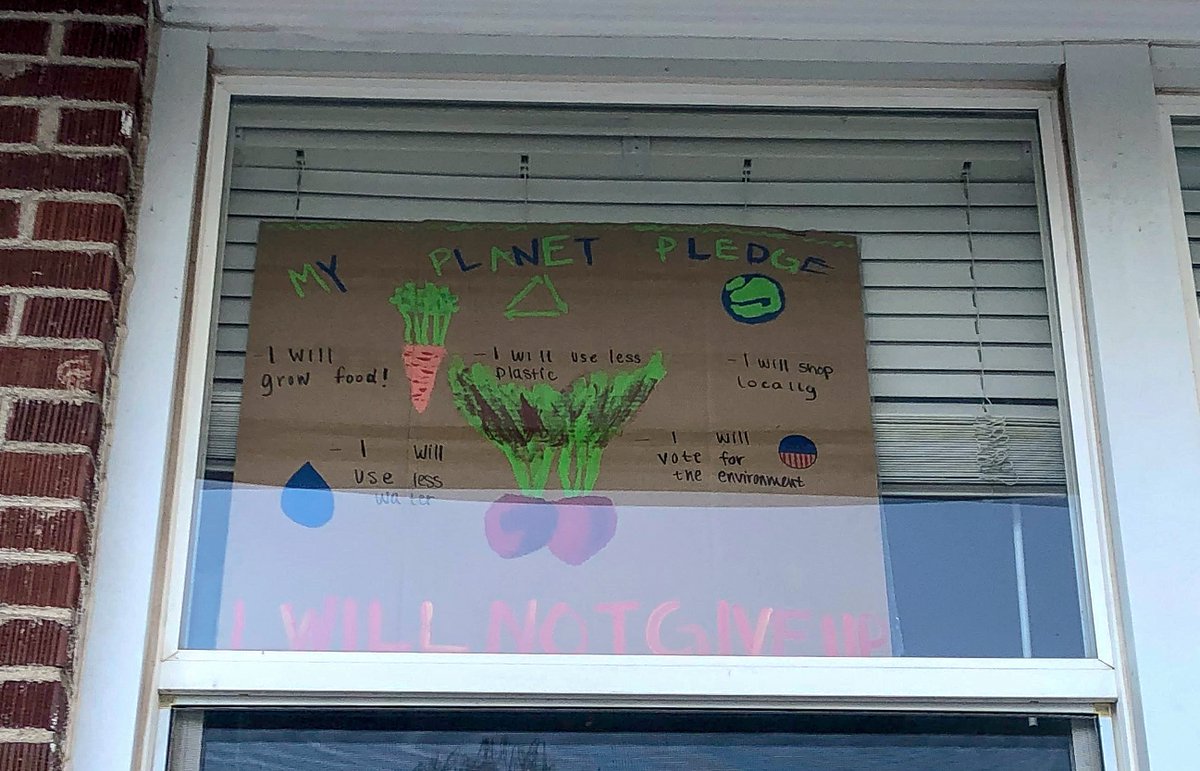 MY PLANET PLEDGE
- I will
grow food!
- I will use less
plastic
- I will shop
locally
- I will
use less
water
- I will
vote for
the environment
I WILL NOT GIVE UP